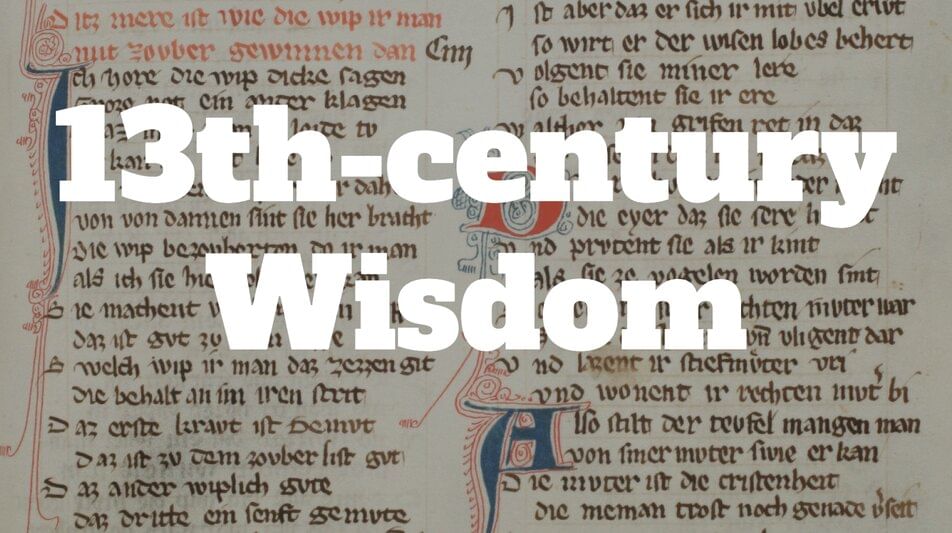 13th-century
Wisdom
Ditz mere ist wie die wip ir man
mit zouber gewinnen dan Ciiij
Ich hore die wip dicke sagen
ein ander klagen
von von dannen sint sie her bracht
die wip bezouberten do ir man
als ich sie
Sie machent
daz ist gvt zv
Swelch wip ir man daz zezzen git
die behalt an im iren strit
Daz erste kravt ist Demvt
daz ist zv dem zovber list gvt
Daz ander wiplich gvte
daz dritte ein senft gemvte
Ist aber daz er sich ir mit vbel erwt
so wirt er der wisen lobes behert
Volgent sie miner lere
so behaltent sie ir ere
grifen ret in daz
die eyer daz sie sere
Vnd prvtent sie als ir kint
als sie ze vogelen worden sint
rechten mvter war
vligent dar
Vnd lazent ir stiefmvter vri
vnd wonent ir rechten mvt bi
Also stilt der tevfel mangen man
von siner mvter swie er kan
Die mvter ist die cristenheit
die nieman trost noch genade vseit